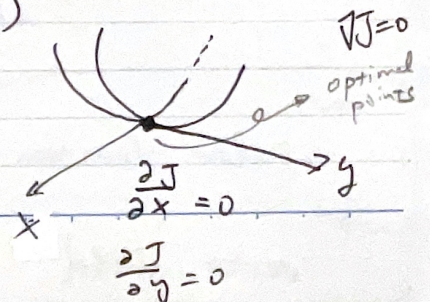 )
∇J=0
optimal
points
y
∂J/∂x = 0
x
∂J/∂y = 0